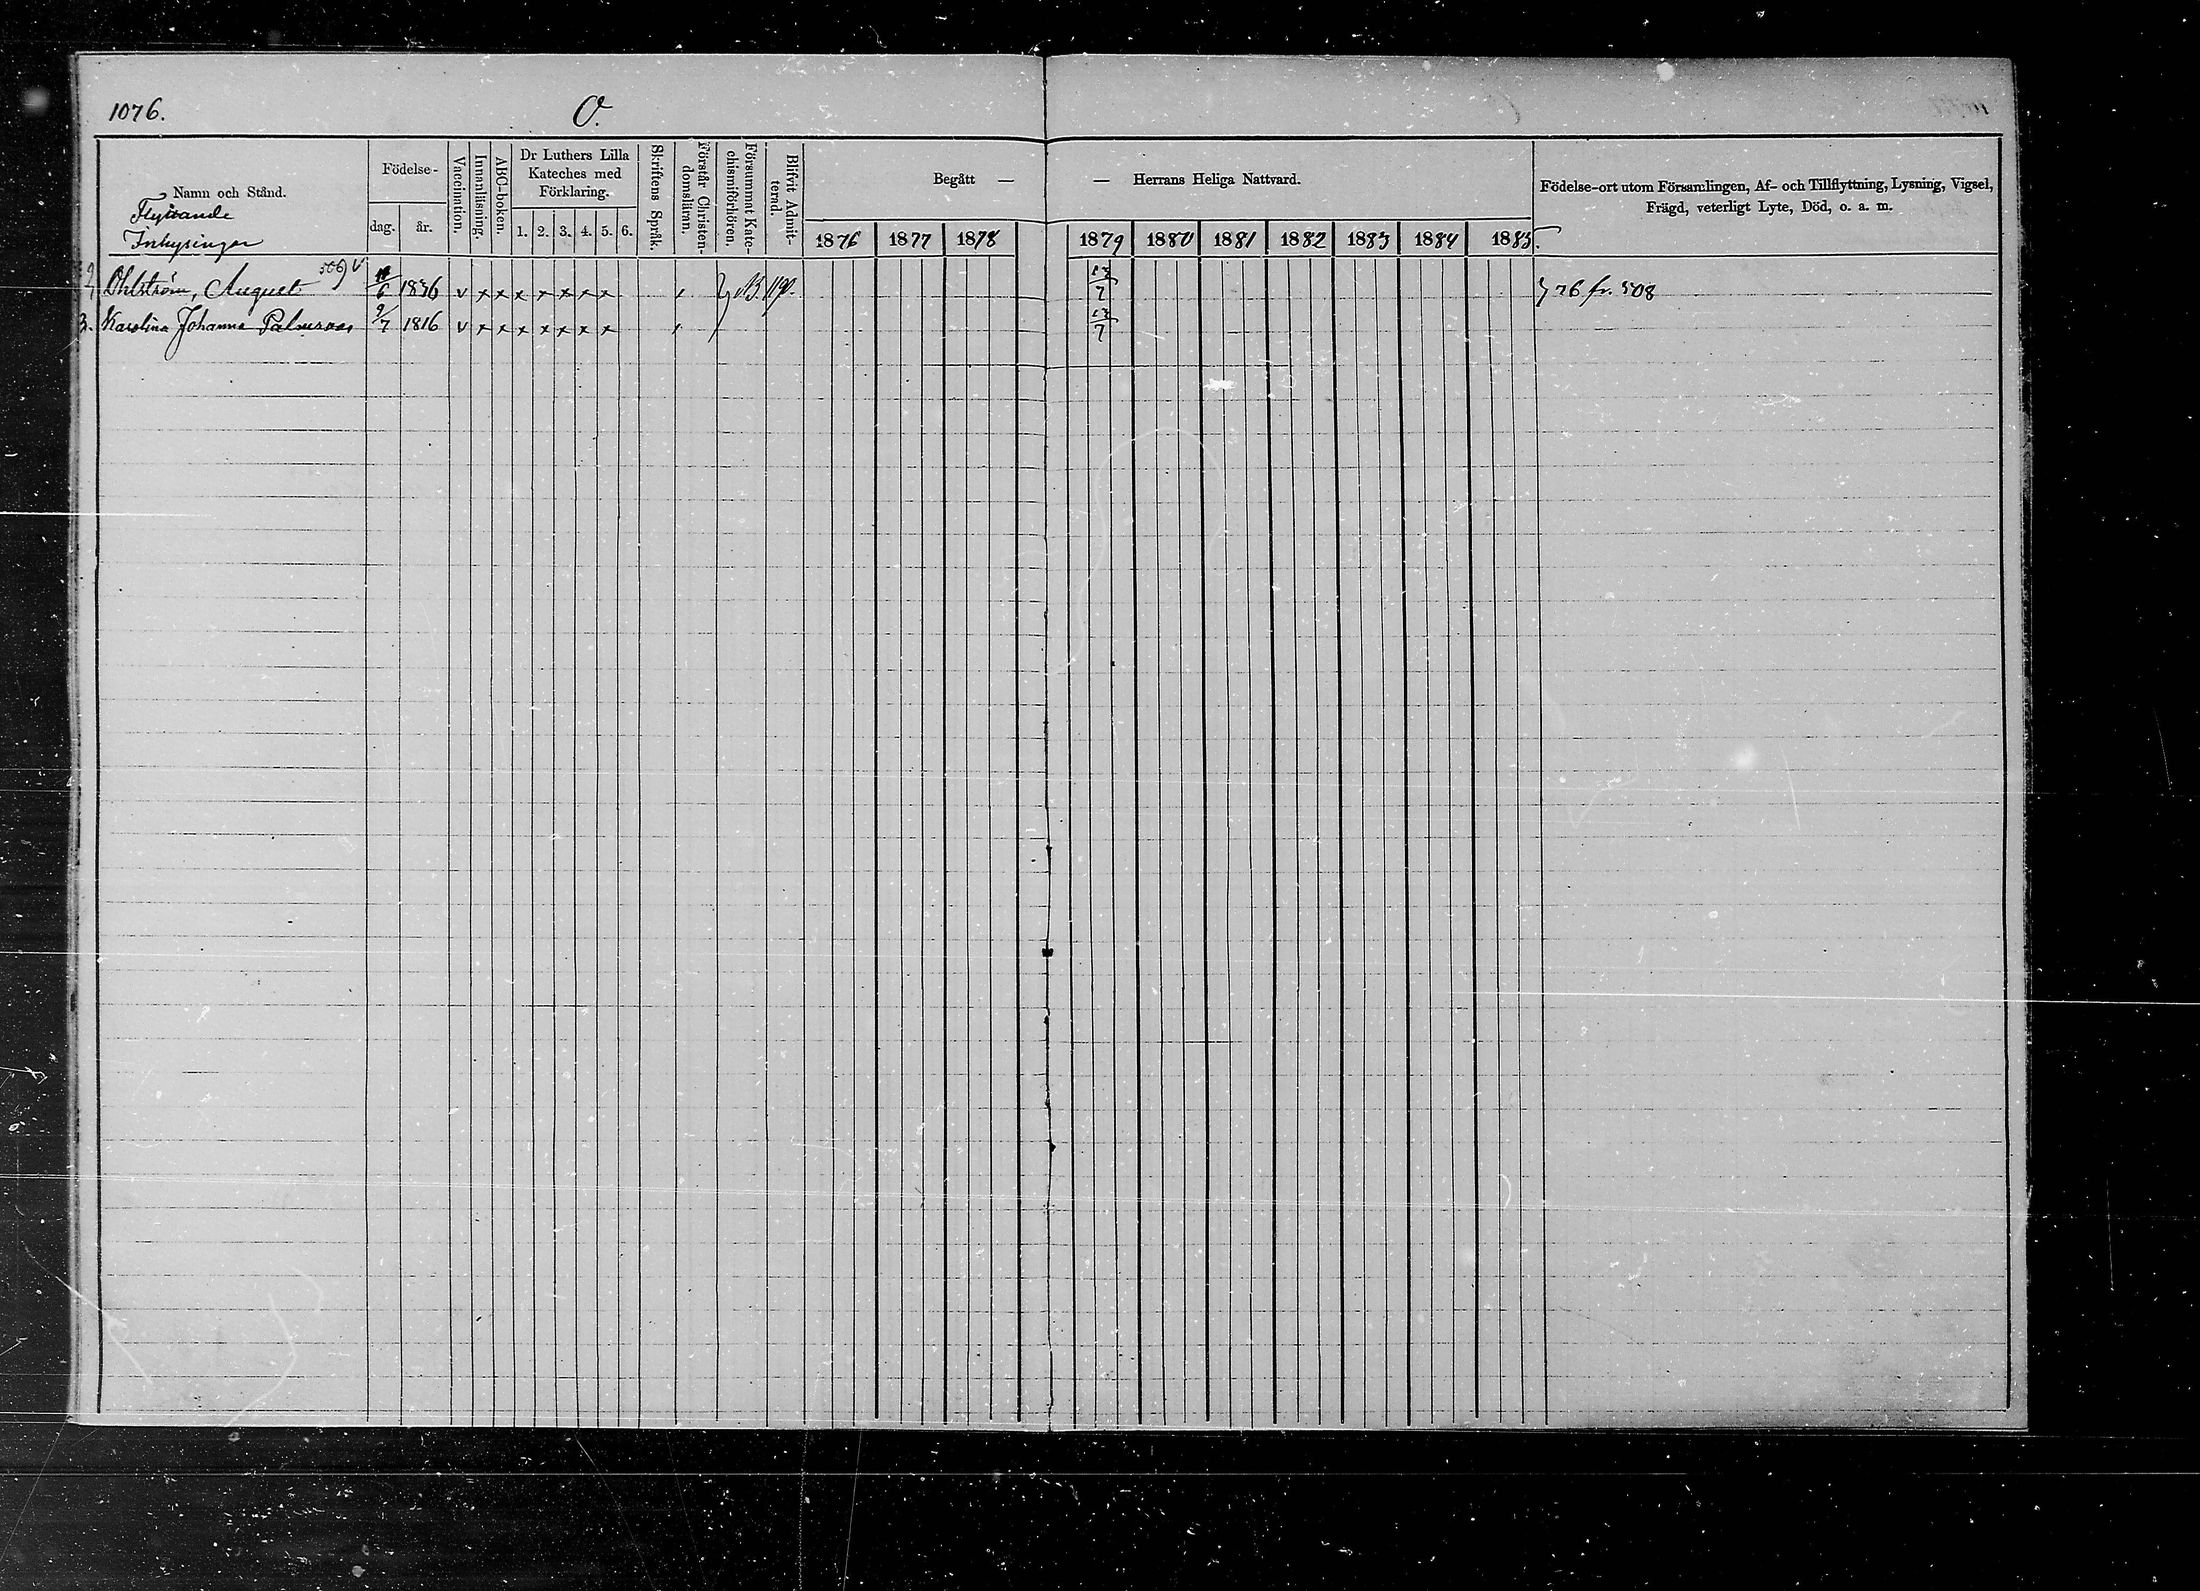 1076.
O.
Namn och Stånd.
Flyttande
Inhysingar
Födelse-
dag.
år.
Vaccination.
Innanläsning.
ABC-boken.
Dr Luthers Lilla
Kateches med
Förklaring.
1. 2. 3. 4. 5. 6.
Skriftens Språk.
Förstår Christen-
domsläran.
Försummat Kate-
chismiförhören.
Blifvit Admit-
terad.
Begått —
— Herrans Heliga Nattvard.
1876 1877 1878 1879 1880 1881 1882 1883 1884 1885.
Födelse-ort utom Församlingen, Af- och Tillflyttning, Lysning, Vigsel,
Frägd, veterligt Lyte, Död, o. a. m.
Ohlström, August 1836 v x x x x x x x 13/7 } 76 fr. 508
3. Karolina Johanna 9/7 1816 v x x x x x x x 13/7